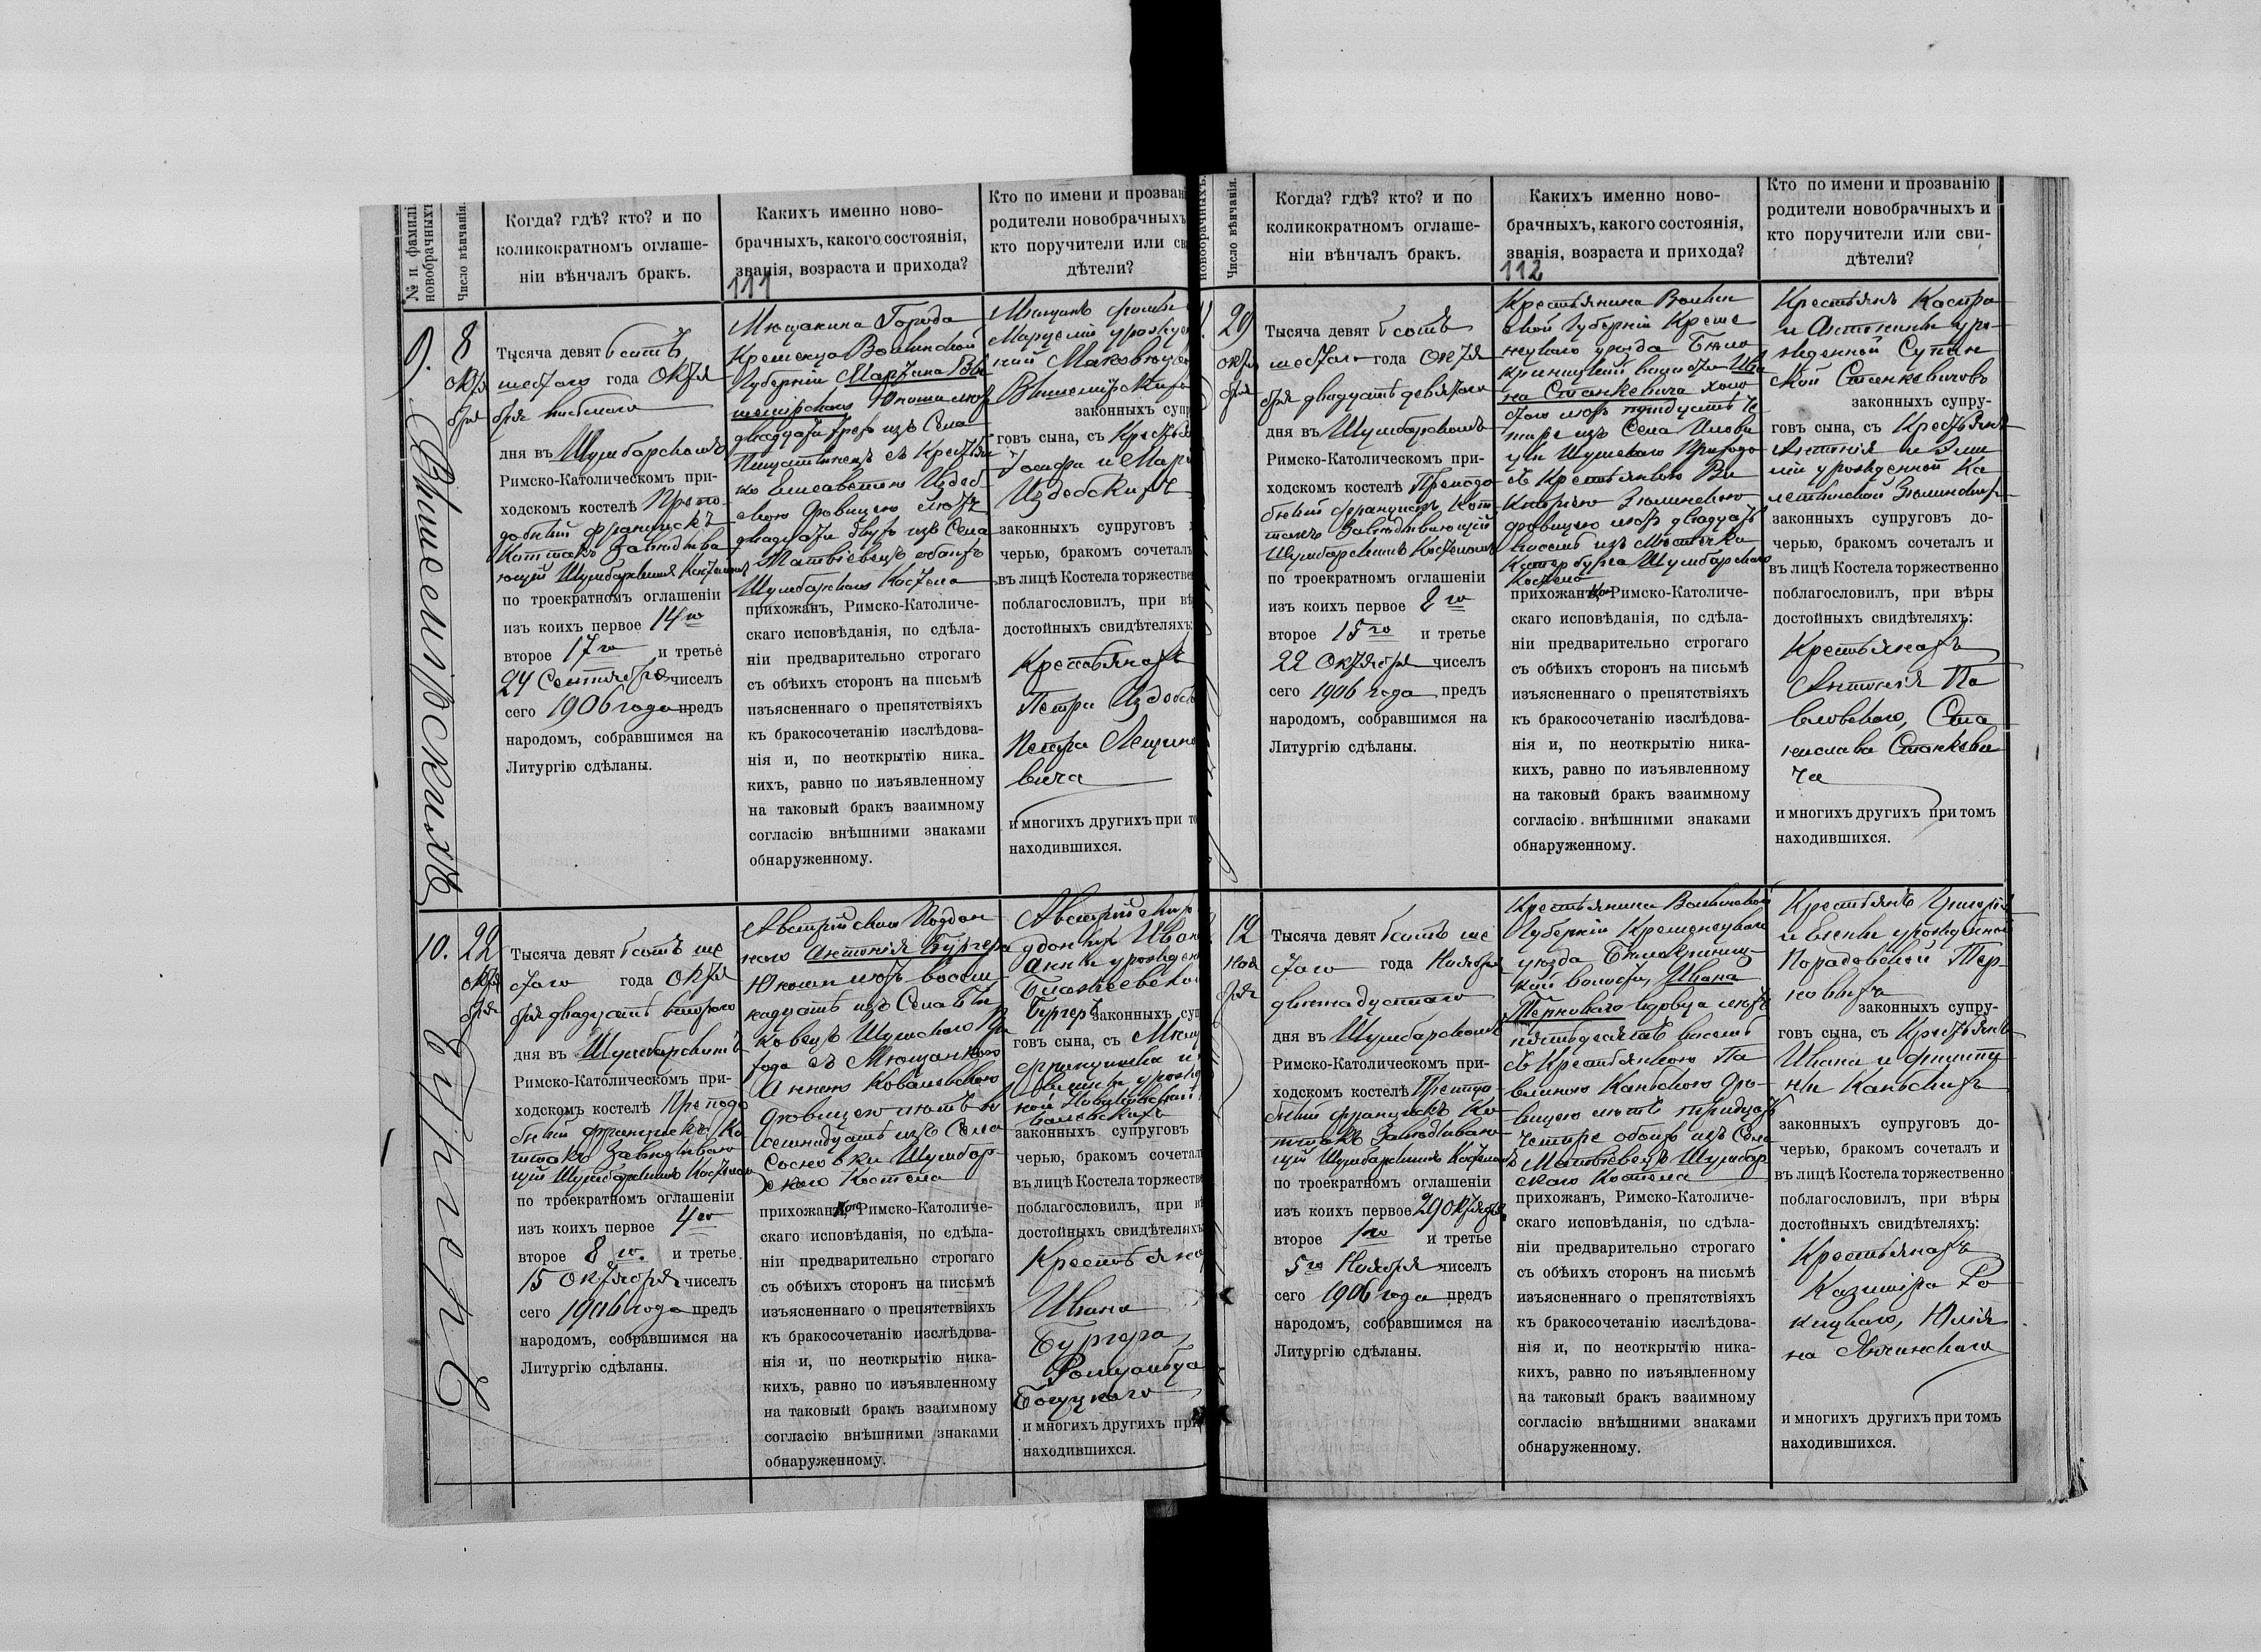 № и фамилі
новобрачныхъ
Число вѣнчанія.
Когда? гдѣ? кто? и по
коликократномъ оглаше-
ніи вѣнчалъ бракъ.
Какихъ именно ново-
брачныхъ, какого состоянія,
званія, возраста и прихода?
Кто по имени и прозван
родители новобрачныхъ
кто поручители или св
дѣтели?
111
9.
Вышемірскихъ
8
октя
бря
Тысяча девятьсотъ
шестаго года Октя
бря восьмаго
дня въ Шумбарскомъ
Римско-Католическомъ при-
ходскомъ костелѣ Препо
добный Францискъ
Завѣдыва
ющій Шумбарскимъ Костеломъ
по троекратномъ оглашеніи
изъ коихъ первое 14го
второе 17го и третье
24 Сентября чиселъ
сего 1906 года предъ
народомъ, собравшимся на
Литургію сдѣланы.
Мѣщанина Города
Кременца Волынской
Губерніи Мартина Вы
шемірскаго Юношу лѣтъ
двадцати трехъ изъ Села
съ Крестьян
кою Елисаветою Издеб
скою Дѣвицею лѣтъ
двадцати двухъ изъ Села
Матвѣевецъ обоихъ
Шумбарскаго Костела
прихожанъ, Римско-Католиче-
скаго исповѣданія, по сдѣла-
ніи предварительно строгаго
съ обѣихъ сторонъ на письмѣ
изъясненнаго о препятствіяхъ
къ бракосочетанію изслѣдова-
нія и, по неоткрытію ника-
кихъ, равно по изъявленному
на таковый бракъ взаимному
согласію внѣшними знаками
обнаруженному.
Мѣщанъ
Вышемірскихъ
законныхъ супр
говъ сына, съ Крестьян
Іосифа и Мар
Издебскихъ
законныхъ супруговъ д
черью, бракомъ сочеталъ
въ лицѣ Костела торжестве
поблагословилъ, при вѣ
достойныхъ свидѣтеляхъ
Крестьянахъ
Петра Издебск
Петра Лещин
вича
и многихъ другихъ при то
находившихся.
10.
Бургеръ
22
октя
бря
Тысяча девятьсотъ ше
стаго года Октя
бря двадцать втораго
дня въ Шумбарскомъ
Римско-Католическомъ при-
ходскомъ костелѣ Преподо
бный Францискъ Ко
Завѣдываю
щій Шумбарскимъ Костеломъ
по троекратномъ оглашеніи
изъ коихъ первое 4го
второе 8го. и третье
15 Октября чиселъ
сего 1906 года предъ
народомъ, собравшимся на
Литургію сдѣланы.
Австрійскаго Поддан
наго Антонія Бургера
Юношу лѣтъ восем
надцать изъ Села Бы
ковецъ Шумскаго При
хода съ Мѣщанкою
Анною Ковалевскою
Дѣвицею лѣтъ во
семнадцать изъ Села
Сосновки Шумбар-
скаго Костела
прихожанъ, Римско-Католиче-
скаго исповѣданія, по сдѣла-
ніи предварительно строгаго
съ обѣихъ сторонъ на письмѣ
изъясненнаго о препятствіяхъ
къ бракосочетанію изслѣдова-
нія и, по неоткрытію ника-
кихъ, равно по изъявленному
на таковый бракъ взаимному
согласію внѣшними знаками
обнаруженному.
Австрійскихъ
Иван
Анны урожден
Бургеръ законныхъ суп
говъ сына, съ Мѣщ
законныхъ супруговъ
черью, бракомъ сочетал
въ лицѣ Костела торжеств
поблагословилъ, при в
достойныхъ свидѣтеляхъ
Крестьяна
Ивана
Бургера,
Ромуальда
и многихъ другихъ при
находившихся.
новобрачныхъ.
Число вѣнчанія.
Когда? гдѣ? кто? и по
коликократномъ оглаше-
ніи вѣнчалъ бракъ.
Какихъ именно ново-
брачныхъ, какого состоянія,
званія, возраста и прихода?
Кто по имени и прозванію
родители новобрачныхъ и
кто поручители или сви-
дѣтели?
112
29
октя
бря
Тысяча девятьсотъ
шестаго года Октя
бря двадцать девятаго
дня въ Шумбарскомъ
Римско-Католическомъ при-
ходскомъ костелѣ Преподо
бный Францискъ
Завѣдывающій
Шумбарскимъ Костеломъ
по троекратномъ оглашеніи
изъ коихъ первое 8го
второе 15го и третье
22 Октября чиселъ
сего 1906 года предъ
народомъ, собравшимся на
Литургію сдѣланы.
Крестьянина Волын
ской Губерніи Креме
нецкаго уѣзда Бѣло
криницкой волости Ива
на Станкевича холо
стаго лѣтъ тридцать че
тыре изъ Села
Шумскаго Прихода
съ Крестьянкою Ви
кторіею Зѣлинскою
Дѣвицею лѣтъ двадцать
восемь изъ Мѣстечка
Катербурга Шумбарскаго
Костела
прихожанъ, Римско-Католиче-
скаго исповѣданія, по сдѣла-
ніи предварительно строгаго
съ обѣихъ сторонъ на письмѣ
изъясненнаго о препятствіяхъ
къ бракосочетанію изслѣдова-
нія и, по неоткрытію ника-
кихъ, равно по изъявленному
на таковый бракъ взаимному
согласію внѣшними знаками
обнаруженному.
Крестьянъ Каспра
и Антонины уро-
жденной Супин
ской Станкевичовъ
законныхъ супру-
говъ сына, съ Крестьянъ
Антонія и Эми
ліи урожденной Ка
Зѣлинскихъ
законныхъ супруговъ до-
черью, бракомъ сочеталъ и
въ лицѣ Костела торжественно
поблагословилъ, при вѣры
достойныхъ свидѣтеляхъ:
Крестьянахъ
Антонія Па
вловскаго, Ста
нислава Станкеви
ча
и многихъ другихъ при томъ
находившихся.
12
Ноя
бря
Тысяча девятьсотъ ше
стаго года Ноября
двѣнадцатаго
дня въ Шумбарскомъ
Римско-Католическомъ при-
ходскомъ костелѣ Преподо
бный Францискъ Ко
Завѣдываю
щій Шумбарскимъ Костеломъ
по троекратномъ оглашеніи
изъ коихъ первое 29 Октября,
второе 1го и третье
5го Ноября чиселъ
сего 1906 года предъ
народомъ, собравшимся на
Литургію сдѣланы.
Крестьянина Волынской
Губерніи Кременецкаго
уѣзда Бѣлокриниц-
кой волости, Ивана
Терноваго вдовца лѣтъ
пятьдесятъ восемь
съ Крестьянкою Па
влиною Каньскою Дѣ-
вицею лѣтъ тридцать
четыре обоихъ изъ Села
Матвѣевецъ Шумбар
скаго Костела
прихожанъ, Римско-Католиче-
скаго исповѣданія, по сдѣла-
ніи предварительно строгаго
съ обѣихъ сторонъ на письмѣ
изъясненнаго о препятствіяхъ
къ бракосочетанію изслѣдова-
нія и, по неоткрытію ника-
кихъ, равно по изъявленному
на таковый бракъ взаимному
согласію внѣшними знаками
обнаруженному.
Крестьянъ Григорія
и Елены урожденной
Порадовской Тер-
новыхъ
законныхъ супру-
говъ сына, съ Крестьянъ
Ивана и
Каньскихъ
законныхъ супруговъ до-
черью, бракомъ сочеталъ и
въ лицѣ Костела торжественно
поблагословилъ, при вѣры
достойныхъ свидѣтеляхъ:
Крестьянахъ
Казиміра Ро
кицкаго, Юлія
на
и многихъ другихъ при томъ
находившихся.